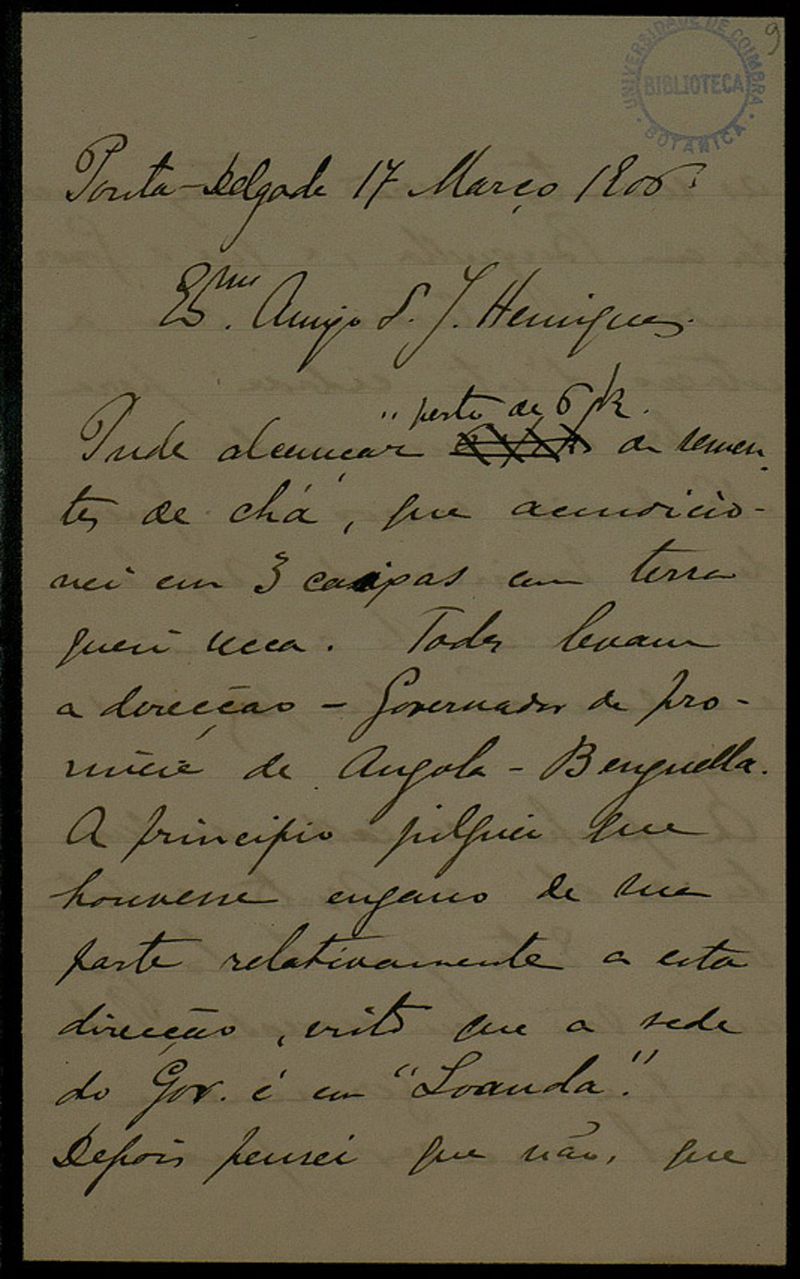 9
UNIVERSIDADE DE COIMBRA
BIBLIOTECA
BOTANICA
Ponta-Delgada 17 Março 1906.
Exmo. Amigo S. J. Henriques.
perto de 6 k.
Pude alcançar de semen-
tes de chá, que acondicio-
nei em 3 caixas com terra
quasi secca. Todas levam
a direcção - Governador da pro-
vincia de Angola - Benguella.
A principio julguei que
houvesse engano de sua
parte relativamente a esta
direcção, visto que a sede
do Gov. é em "Loanda".
Depois pensei que não, que